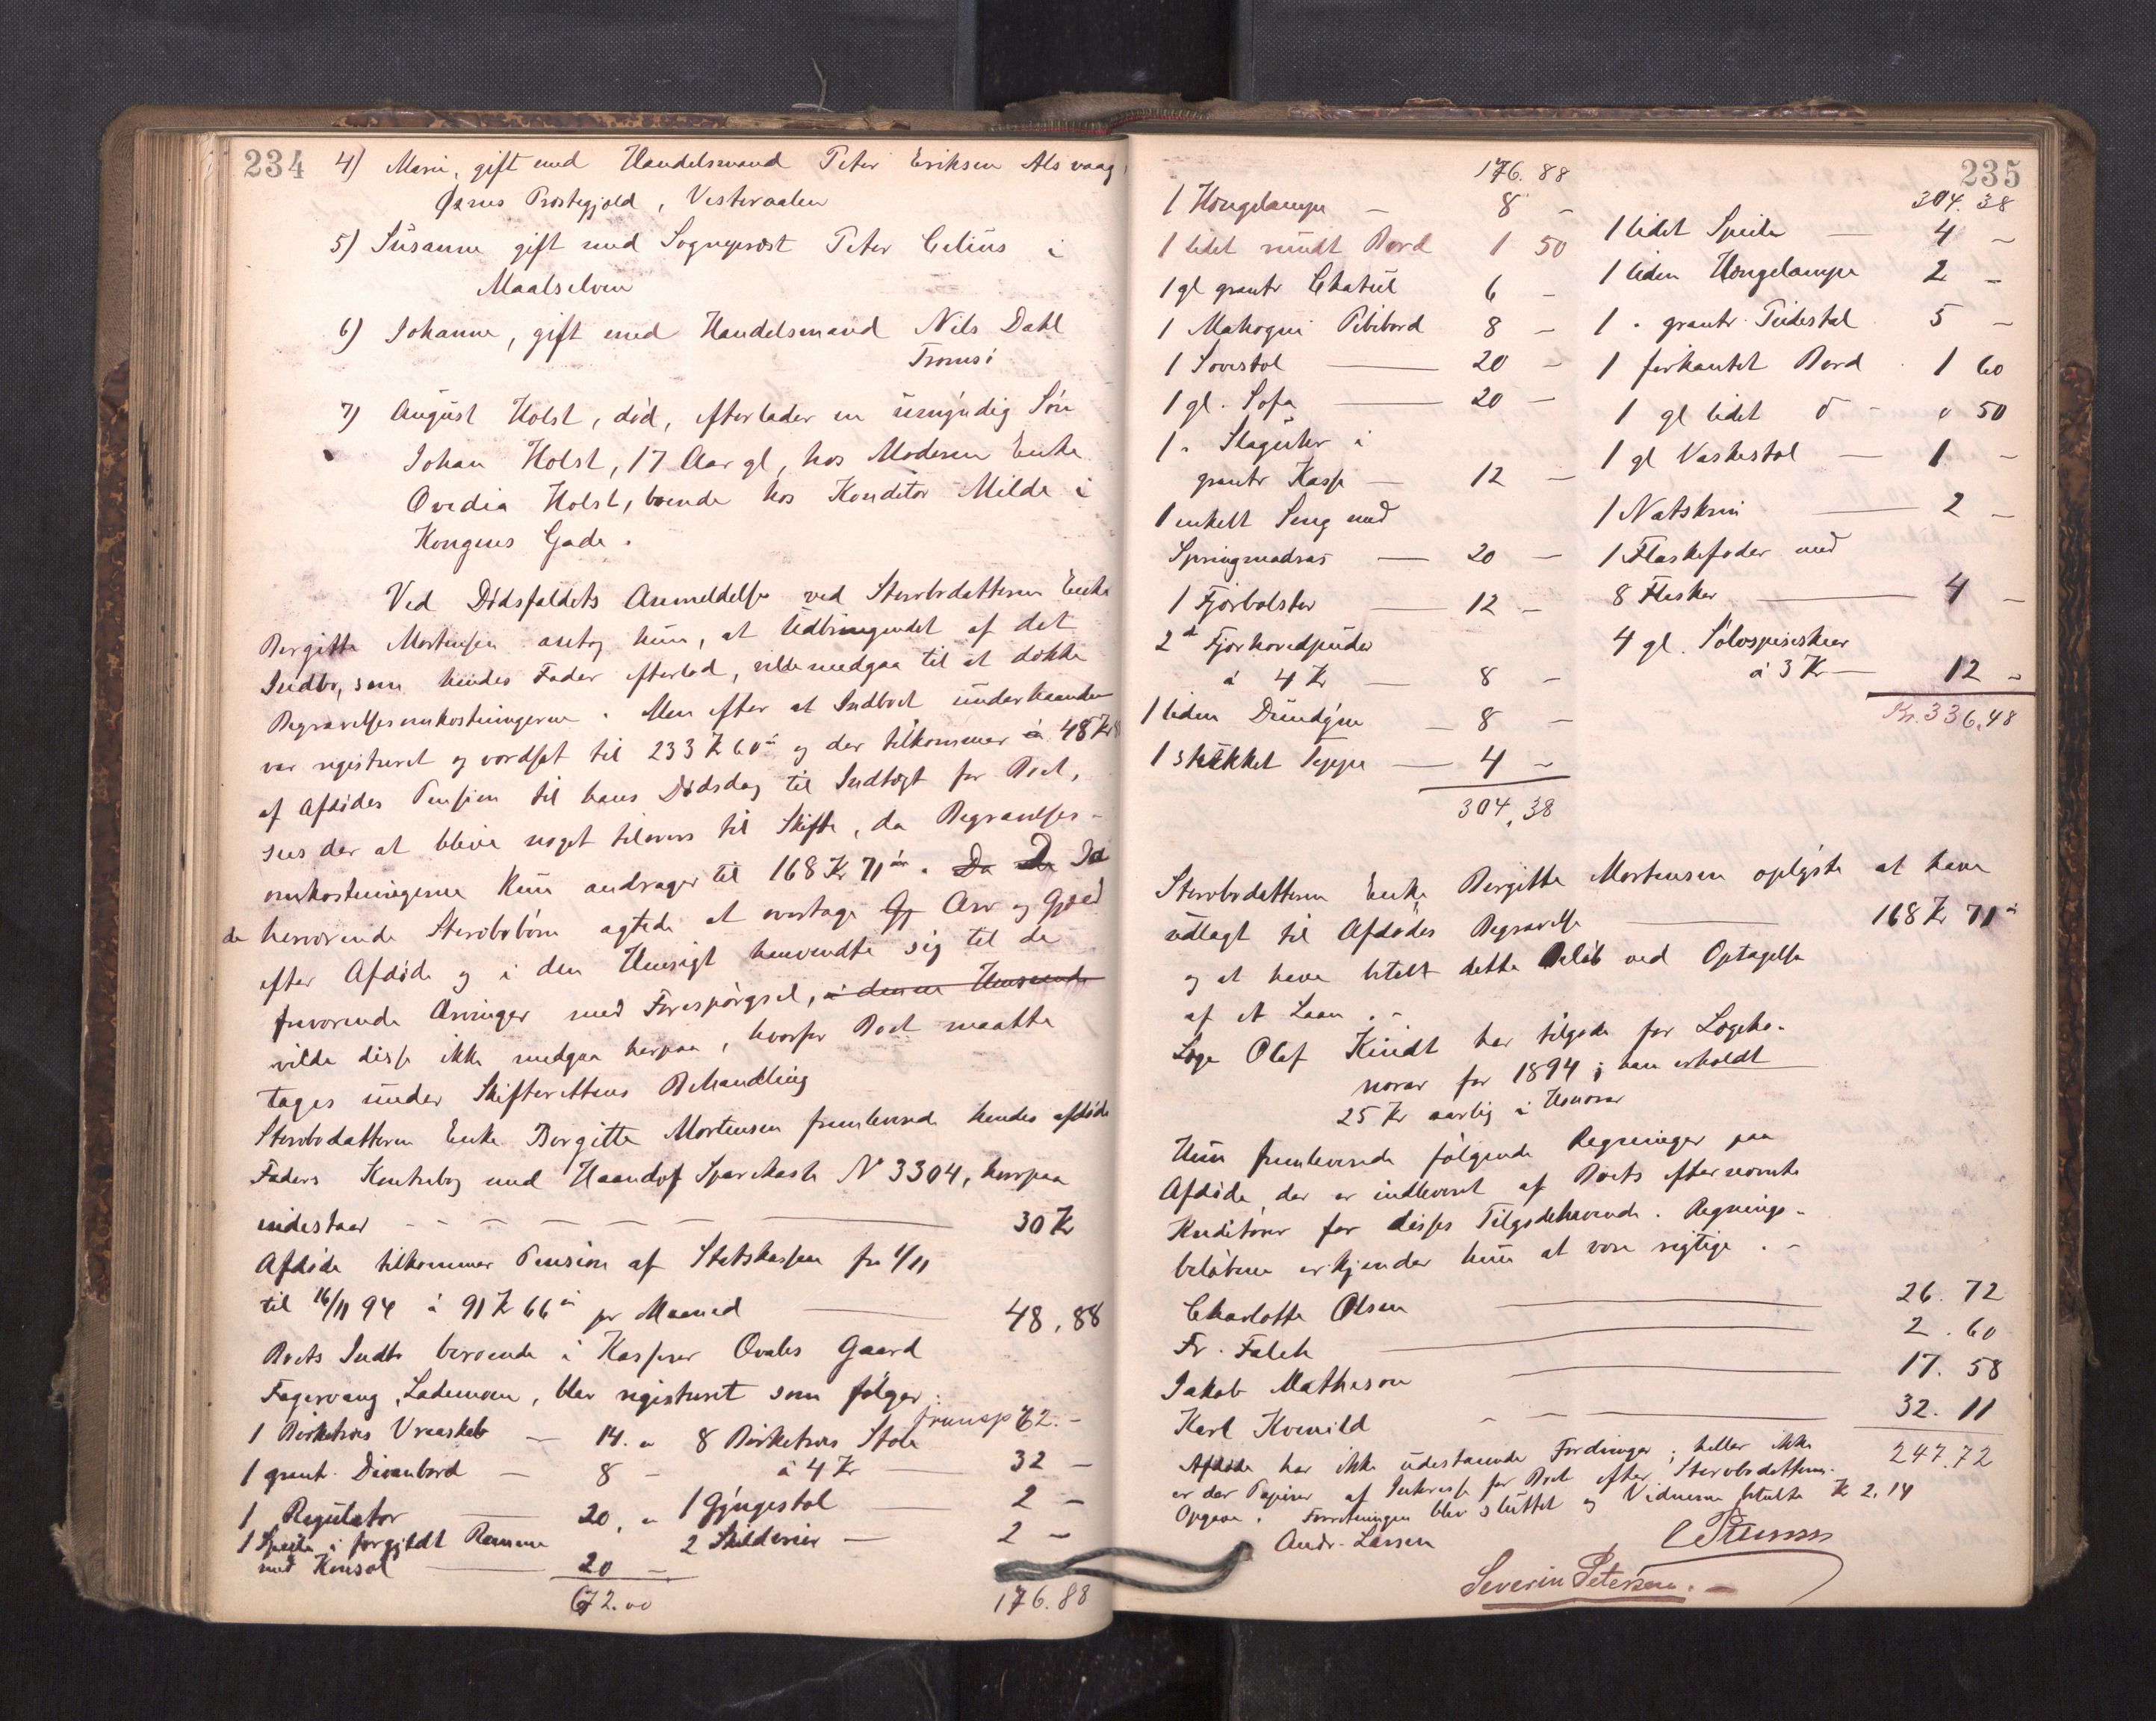 234
4) Marie, gift med Handelsmand Peter Eriksen Alsvaag,
Øxnes Præstegjeld, Vesteraalen
5) Susanne gift med Sognepræst Peter Celius i
Maalselven
6) Johanne, gift med Handelsmand Nils Dahl
Tromsö
7) August Holst, död, efterlader en umyndig Sön
Johan Holst, 17 Aar gl, hos Moderen Enke
Ovedia Holst, boende hos Konditor Milde i
Kongens Gade.
Ved Dödsfaldets Anmeldelse ved Stervbodatteren Enke
Bergitte Mortensen antog hun, at Udbringendet af det
Indbo, som hendes Fader efterlod, vilde medgaa til at dække
Begravelsesomkostningerne. Men efter at Indboet underhaanden
var registreret og værdsat til 233 Kr 60 ö og der tilkommer a 48 Kr 88
af Afdödes Pension til hans Dödsdag til Indtægt for Boet,
sees der at blive noget tilovers til Skifte, da Begravelses-
omkostningerne kun andrager til 168 Kr 71 ör. Da De Da
de herværende Stervbobörn agtede at overtage Gj Arv og Gjæld
efter Afdöde og i den Hensigt henvendte sig til de
fraværende Arvinger med Forespörgsel, i denne Henseende
vilde disse ikke medgaa herpaa, hvorfor Boet maatte
tages under Skifterettens Behandling
Stervbodatteren Enke Bergitte Mortensen fremleverede hendes afdöde
Faders Kontrabog med Haandv Sparekasse No 3304, hvorpaa
indestaar - - - - - - 30 Kr
Afdöde tilkommer Pension af Statskassen fra 1/11
til 16/11 94 á 91 Kr 66 ö pr Maaned — 48,88
Boets Indbo beroende i Kasserer Qvales Gaard
Fagervang, Lademoen, blev registreret som fölger:
transp 62.-
1 Birketræs Vraaskab — 14. " 8 Birketræs Stole
á 4 Kr — 32 -
1 grantr. Divanbord — 8 -
1 Regulator — 20. " 1 Gyngestol — 2 -
1 Speile i forgyldt Ramme
med Konsol — 20 -
2 Skilderier — 2 -
62.00
176.88
235
176.88
1 Hængelampe — 8 -
1 lidet rundt Bord 1 50
1 gl grantr Chatul 6 -
1 Mahogni Pibebord 8 -
1 Sovestol — 20 -
1 gl. Sofa — 20 -
1 " Slaguhr i
grantr Kasse — 12 -
1 enkelt Seng med
Springmadras — 20 -
1 Fjærbolster — 12 -
2 d Fjærhovedpuder
á 4 Kr — 8 -
1 liden Dundyne — 8 -
1 strikket Teppe — 4 -
304,38
304.38
1 lidet Speile — 4 -
1 liden Hængelampe 2 -
1 " grantr. Piedestal 5 -
1 firkantet Bord . 1 60
1 gl lidet do - " 50
1 gl Vaskestol — 1 -
1 Natskrin — 2 -
1 Flaskefoder med
8 Flasker — 4 -
4 gl. Sölvspiseskeer
á 3 Kr — 12 -
Kr. 336,48
Stervbodatteren Enke Bergitte Mortensen oplyste at have
udlagt til Afdödes Begravelse — 168 Kr 71 ö
og at have betalt dette Belöb ved Optagelse
af et Laan. -
Læge Olaf Kindt har tilgode for Lægeho-
norar for 1894; han erholdt
25 Kr aarlig i Honorar
Hun fremleverede fölgende Regninger paa
Afdöde der er indleveret af Boets efternævnte
Kreditorer for disses Tilgodehavende. Regnings-
belöbene erkjender hun at være rigtige. -
Charlotte Olsen — 26.72
Fr. Falch — 2.60
Jakob Matheson — 17.58
Karl Kvenild — 32.11
247.72
Afdöde har ikke udestaaende Fordringer; heller ikke
er der Papirer af Interesse for Boet efter Stervbodatterens
Opgave. Forretningen blev sluttet og Vidnerne betalte Kr 2,14
Andr. Larsen
Severin Petersen. -